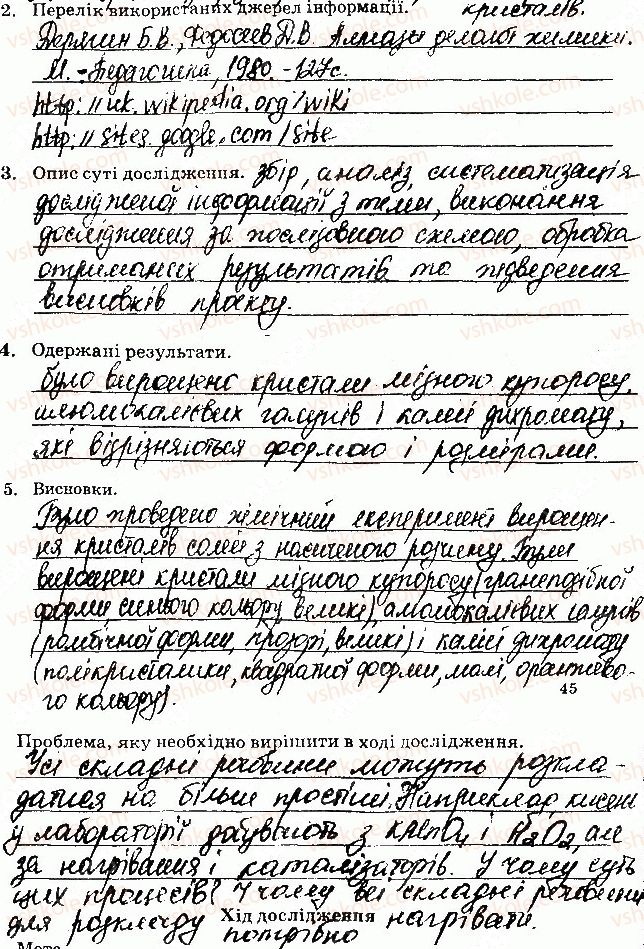 2. Перелік використаних джерел інформації. кристалів.
Дерягин Б.В., Федосеев Д.В. Алмазы делают химики.
М. - Педагогика, 1980. - 127с.
http://uk.wikipedia.org/wiki
http://sites.google.com/site
3. Опис суті дослідження. Збір, аналіз, систематизація
дослідженої інформації з теми, виконання
дослідження за послідовною схемою, обробка
отриманих результатів та підведення
висновків проєкту.
4. Одержані результати.
Було вирощено кристали мідного купоросу,
алюмокалієвих галунів і калій дихромату,
які відрізняються формою і розмірами.
5. Висновки.
Було проведено хімічний експеримент вирощен-
ня кристалів солей з насиченого розчину. Були
вирощені кристали мідного купоросу (гранеподібної
форми синього кольору, великі), алюмокалієвих галунів
(ромбічної форми, прозорі, великі) і калій дихромату
(полікристалики, квадратної форми, малі, оранжево-
го кольору).
45
Проблема, яку необхідно вирішити в ході дослідження.
Усі складні речовини можуть розкла-
датися на більш простіші. Наприклад, кисень
у лабораторії добувають з KMnO4 і H2O2, але
за нагрівання і каталізаторів. У чому суть
цих процесів? У чому всі складні речовини
для розкладу потрібно нагрівати.
Хід дослідження
Мета